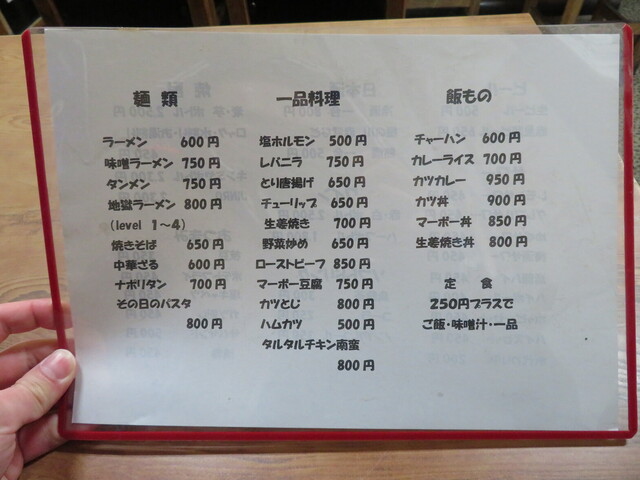 麺類
ラーメン 600円
味噌ラーメン 750円
タンメン 750円
地獄ラーメン 800円
(level 1～4)
焼きそば 650円
中華ざる 600円
ナポリタン 700円
その日のパスタ
800円
一品料理
塩ホルモン 500円
レバニラ 750円
とり唐揚げ 650円
チューリップ 650円
生姜焼き 700円
野菜炒め 650円
ローストビーフ 850円
マーボー豆腐 750円
カツとじ 800円
ハムカツ 500円
タルタルチキン南蛮
800円
飯もの
チャーハン 600円
カレーライス 700円
カツカレー 950円
カツ丼 900円
マーボー丼 850円
生姜焼き丼 800円
定食
250円プラスで
ご飯・味噌汁・一品